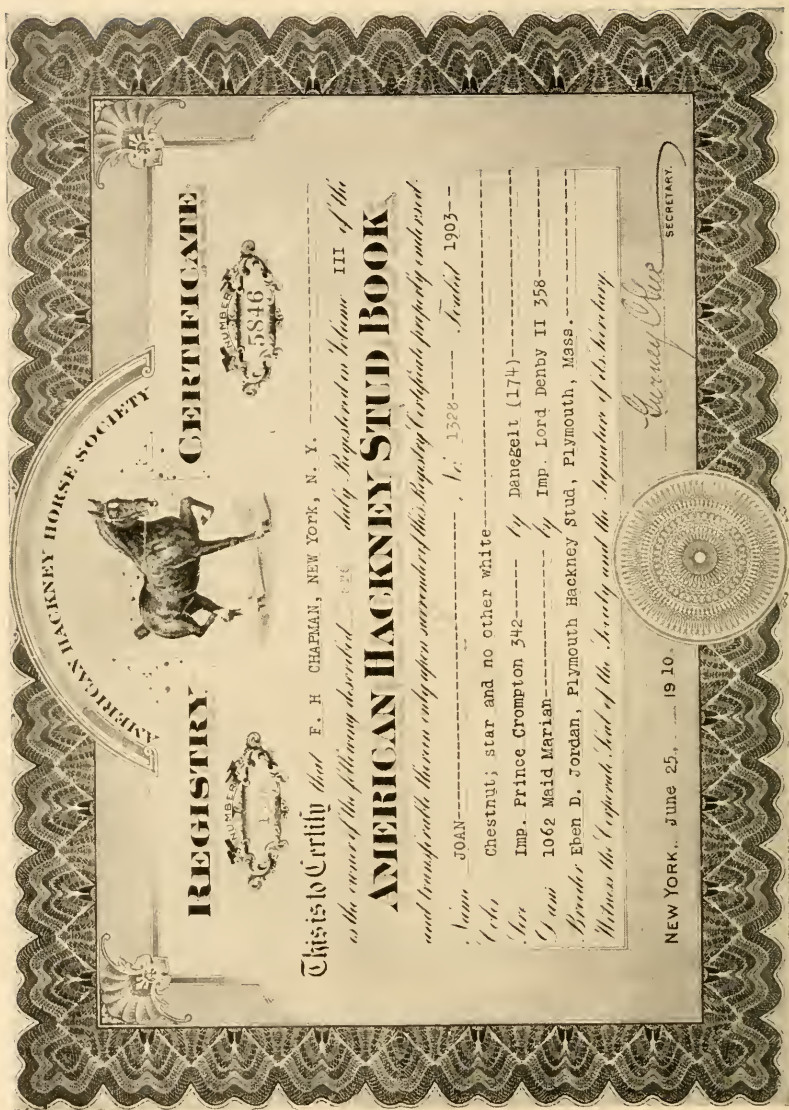 AMERICAN HACKNEY HORSE SOCIETY
REGISTRY CERTIFICATE
NUMBER
NUMBER 5846
This is to Certify that F. H CHAPMAN, NEW YORK, N. Y. --------------------
is the owner of the following described duly Registered in Volume III of the
AMERICAN HACKNEY STUD BOOK
and transferable therein only upon surrender of this Registry Certificate properly endorsed.
Name JOAN--------------------, No. 1328----- Foaled 1903--
Color Chestnut; star and no other white--------------------
Sire Imp. Prince Crompton 342------ by Danegelt (174)--------------------
Dam 1062 Maid Marian---------- by Imp. Lord Denby II 358------
Breeder Eben D. Jordan, Plymouth Hackney Stud, Plymouth, Mass.----------
Witness the Corporate Seal of the Society and the Signature of its Secretary.
NEW YORK, June 25, 1910.
Gurney SECRETARY.